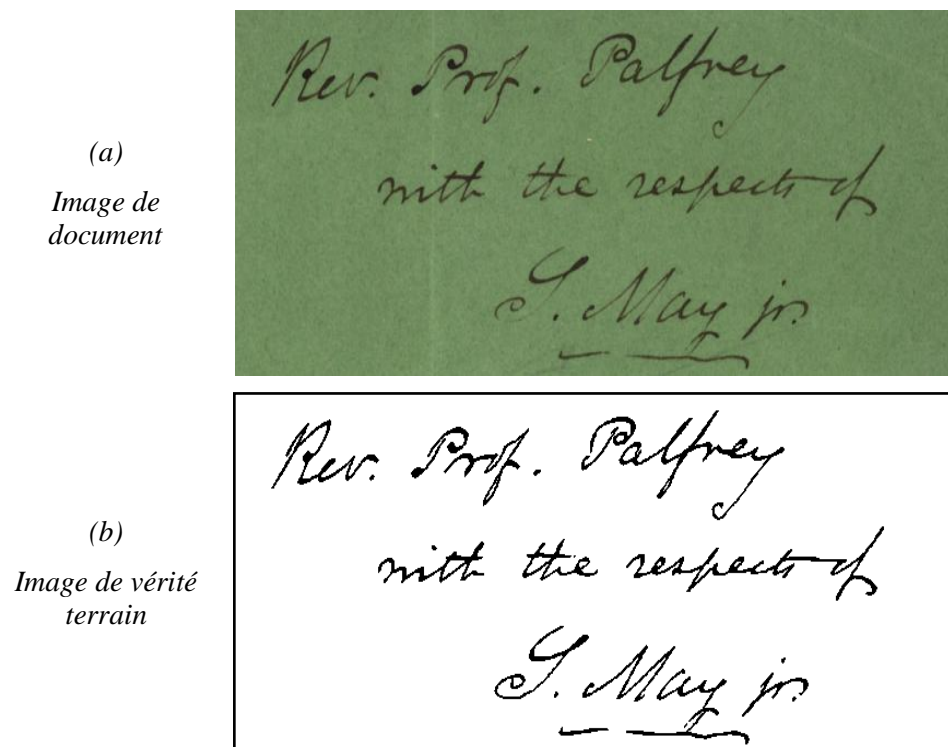 (a)
Image de
document
Rev. Prof. Palfrey
with the respects of
S. May jr.
(b)
Image de vérité
terrain
Rev. Prof. Palfrey
with the respects of
S. May jr.